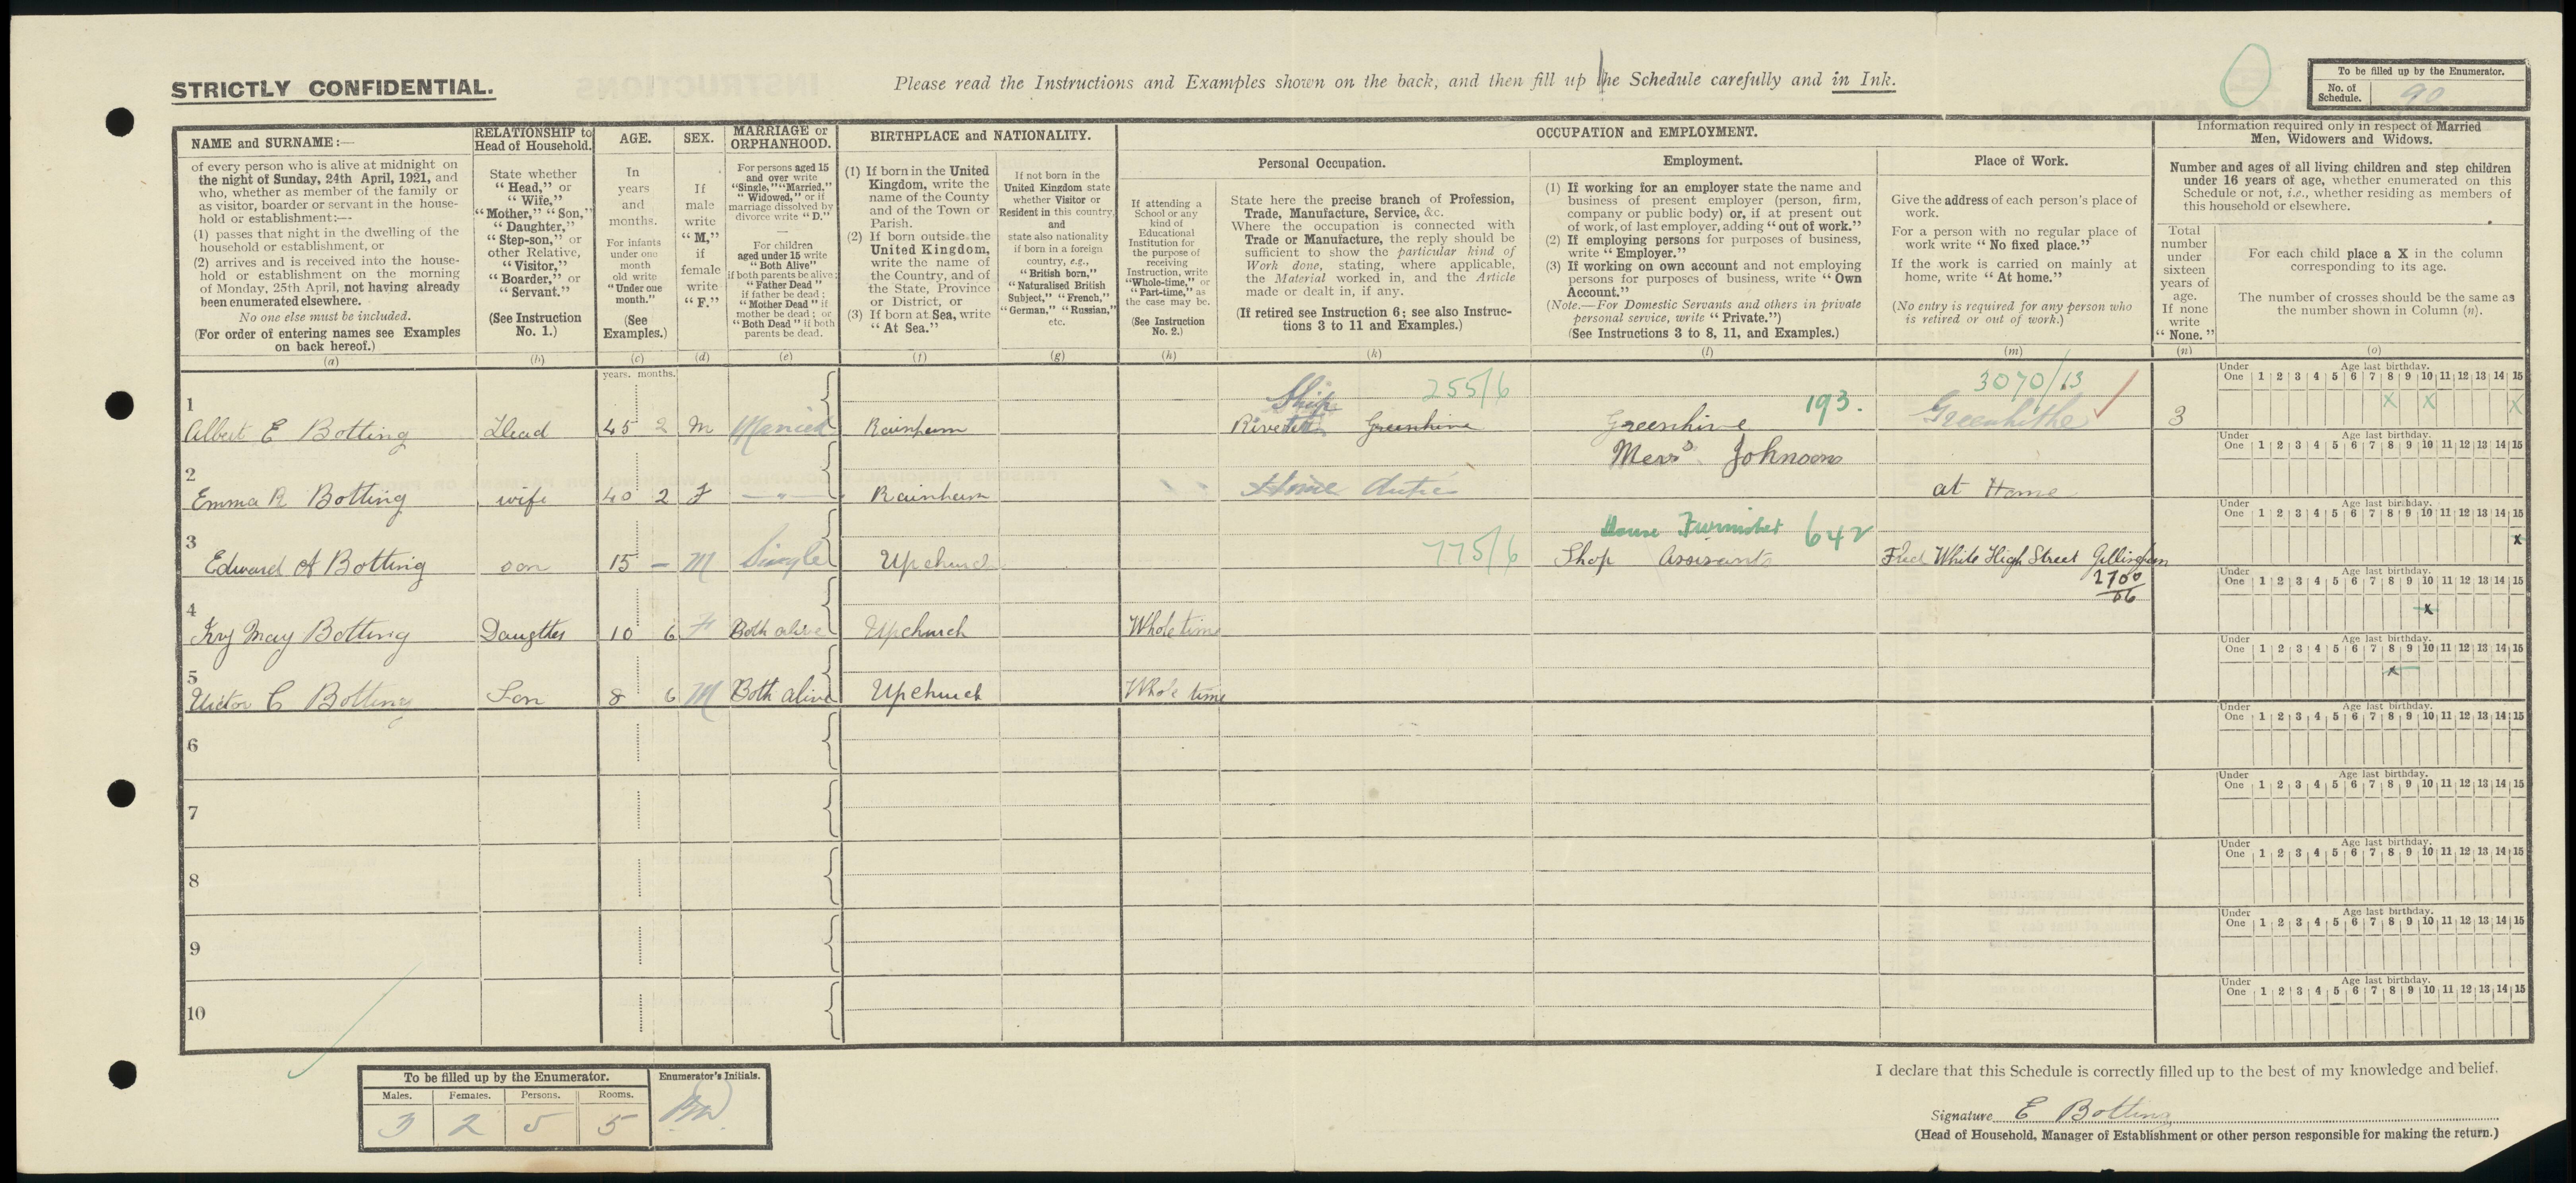 STRICTLY CONFIDENTIAL.
Please read the Instructions and Examples shown on the back, and then fill up the Schedule carefully and in Ink.
To be filled up by the Enumerator.
No. of Schedule. 90
NAME and SURNAME:—
of every person who is alive at midnight on
the night of Sunday, 24th April, 1921, and
who, whether as member of the family or
as visitor, boarder or servant in the house-
hold or establishment:—
(1) passes that night in the dwelling of the
household or establishment, or
(2) arrives and is received into the house-
hold or establishment on the morning
of Monday, 25th April, not having already
been enumerated elsewhere.
No one else must be included.
(For order of entering names see Examples
on back hereof.)
(a)
RELATIONSHIP to
Head of Household.
State whether
"Head," or
"Wife,"
"Mother," "Son,"
"Daughter,"
"Step-son," or
other Relative,
"Visitor,"
"Boarder," or
"Servant."
(See Instruction
No. 1.)
(b)
AGE.
In
years
and
months.
For infants
under one
month
old write
"Under one
month."
(See
Examples.)
(c)
SEX.
If
male
write
"M,"
if
female
write
"F."
(d)
MARRIAGE or
ORPHANHOOD.
For persons aged 15
and over write
"Single," "Married,"
"Widowed," or if
marriage dissolved by
divorce write "D."
For children
aged under 15 write
"Both Alive"
if both parents be alive;
"Father Dead"
if father be dead;
"Mother Dead" if
mother be dead; or
"Both Dead" if both
parents be dead.
(e)
BIRTHPLACE and NATIONALITY.
(1) If born in the United
Kingdom, write the
name of the County
and of the Town or
Parish.
(2) If born outside the
United Kingdom,
write the name of
the Country, and of
the State, Province
or District, or
(3) If born at Sea, write
"At Sea."
(f)
If not born in the
United Kingdom state
whether Visitor or
Resident in this country,
and
state also nationality
if born in a foreign
country, e.g.,
"British born,"
"Naturalised British
Subject," "French,"
"German," "Russian,"
etc.
(g)
OCCUPATION and EMPLOYMENT.
If attending a
School or any
kind of
Educational
Institution for
the purpose of
receiving
Instruction, write
"Whole-time," or
"Part-time," as
the case may be.
(See Instruction
No. 2.)
(h)
Personal Occupation.
State here the precise branch of Profession,
Trade, Manufacture, Service, &c.
Where the occupation is connected with
Trade or Manufacture, the reply should be
sufficient to show the particular kind of
Work done, stating, where applicable,
the Material worked in, and the Article
made or dealt in, if any.
(If retired see Instruction 6; see also Instruc-
tions 3 to 11 and Examples.)
(k)
Employment.
(1) If working for an employer state the name and
business of present employer (person, firm,
company or public body) or, if at present out
of work, of last employer, adding "out of work."
(2) If employing persons for purposes of business,
write "Employer."
(3) If working on own account and not employing
persons for purposes of business, write "Own
Account."
(Note.—For Domestic Servants and others in private
personal service, write "Private.")
(See Instructions 3 to 8, 11, and Examples.)
(l)
Place of Work.
Give the address of each person's place of
work.
For a person with no regular place of
work write "No fixed place."
If the work is carried on mainly at
home, write "At home."
(No entry is required for any person who
is retired or out of work.)
(m)
Information required only in respect of Married
Men, Widowers and Widows.
Number and ages of all living children and step children
under 16 years of age, whether enumerated on this
Schedule or not, i.e., whether residing as members of
this household or elsewhere.
Total
number
under
sixteen
years of
age.
If none
write
"None."
(n)
For each child place a X in the column
corresponding to its age.
The number of crosses should be the same as
the number shown in Column (n).
(o)
years. months.
Under One Age last birthday. 1 2 3 4 5 6 7 8 9 10 11 12 13 14 15
Ship 255/6 193. 3070/13
1 Albert E Botting Head 45 2 M Married Rainham Greenhine Greenhithe 3 X X X
Mess^s Johnsons
Under One Age last birthday. 1 2 3 4 5 6 7 8 9 10 11 12 13 14 15
2 Emma R Botting wife 40 2 F — " — Rainham Home duties at Home
Under One Age last birthday. 1 2 3 4 5 6 7 8 9 10 11 12 13 14 15
House Furnisher 642
3 Edward A Botting son 15 — M Single Upchurch 775/6 Shop Assisant Fred White High Street Gillingham x
2700/06
Under One Age last birthday. 1 2 3 4 5 6 7 8 9 10 11 12 13 14 15
4 Ivy May Botting Daugther 10 6 F Both alive Upchurch Whole time x
Under One Age last birthday. 1 2 3 4 5 6 7 8 9 10 11 12 13 14 15
5 Victor C Botting Son 8 6 M Both alive Upchurch Whole time x
Under One Age last birthday. 1 2 3 4 5 6 7 8 9 10 11 12 13 14 15
6
Under One Age last birthday. 1 2 3 4 5 6 7 8 9 10 11 12 13 14 15
7
Under One Age last birthday. 1 2 3 4 5 6 7 8 9 10 11 12 13 14 15
8
Under One Age last birthday. 1 2 3 4 5 6 7 8 9 10 11 12 13 14 15
9
Under One Age last birthday. 1 2 3 4 5 6 7 8 9 10 11 12 13 14 15
10
To be filled up by the Enumerator.
Males. Females. Persons. Rooms.
3 2 5 5
Enumerator's Initials.
I declare that this Schedule is correctly filled up to the best of my knowledge and belief.
Signature E Botting
(Head of Household, Manager of Establishment or other person responsible for making the return.)